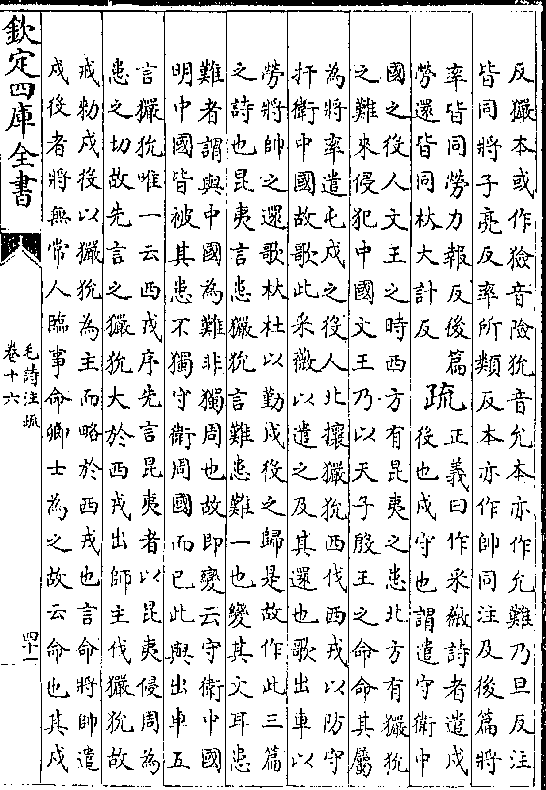 反玁本或作獫音險狁音允本亦作允難乃旦反注
皆同將子亮反率所類反本亦作帥同注及後篇將
率皆同勞力報反後篇
勞還皆同杕大計反
疏
正義曰作采薇詩者遣戍
役也戍守也謂遣守衛中
國之役人文王之時西方有昆夷之患北方有玁狁
之難來侵犯中國文王乃以天子殷王之命命其屬
為將率遣屯戍之役人北攘玁狁西伐西戎以防守
扞衛中國故歌此采薇以遣之及其還也歌出車以
勞將帥之還歌杕杜以勤戍役之歸是故作此三篇
之詩也昆夷言患玁狁言難患難一也變其文耳患
難者謂與中國為難非獨周也故即變云守衛中國
明中國皆被其患不獨守衛周國而已此與出車五
言玁狁唯一云西戎序先言昆夷者以昆夷侵周為
患之切故先言之玁狁大於西戎出師主伐玁狁故
戒勑戍役以玁狁為主而略於西戎也言命將帥遣
戍役者將無常人臨事命卿士為之故云命也其戍
欽定四庫全書
毛詩注疏
卷十六
四十一